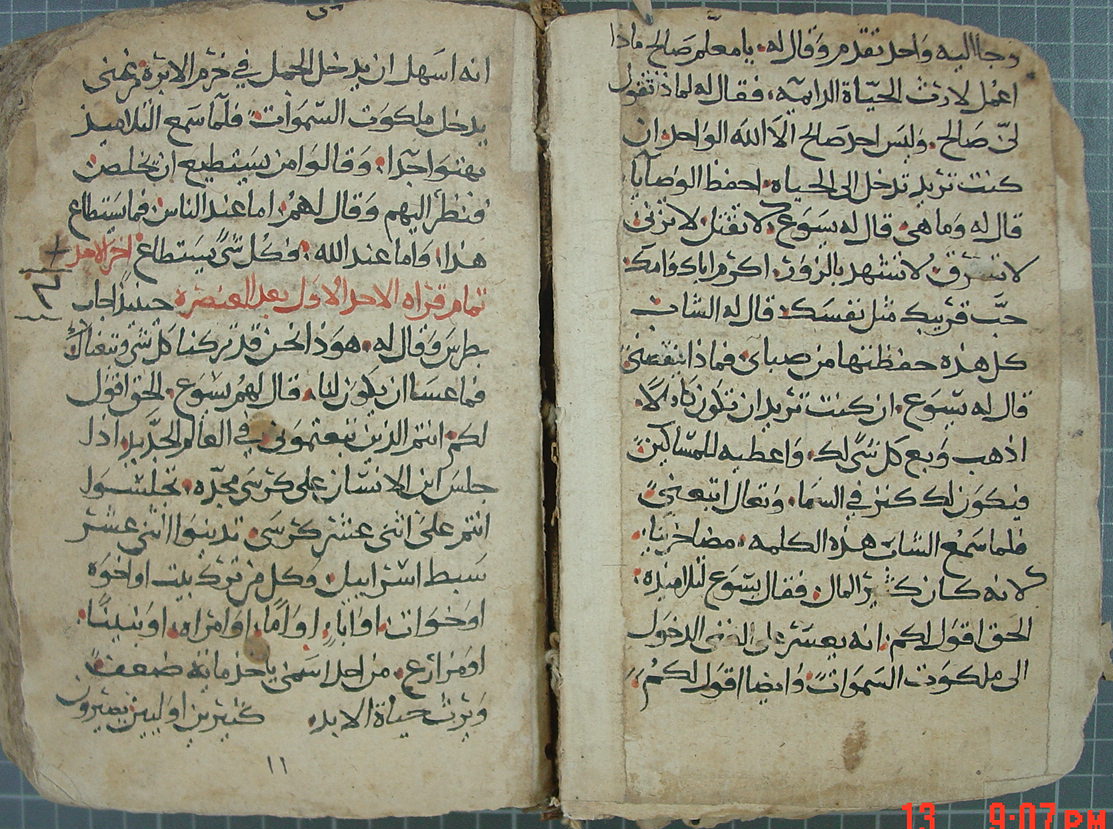 وجا اليه واحد تقدم وقال له يا معلم صالح ماذا
اعمل لارث الحياة الدايمه، فقال له لماذا تقول
لي صالح، وليس احد صالح الا الله الواحد، ان
كنت تريد تدخل الى الحياه، احفظ الوصايا
قال له وما هي، قال له يسوع لا تقتل لا تزني
لا تسرق، لا تشهد بالزور، اكرم اباك وامك،
حب قريبك مثل نفسك قال له الشاب
كل هذه حفظتها من صباي، فماذا ينقصني
قال له يسوع، ان كنت تريد ان تكون كاملا،
اذهب وبع كل شي لك، واعطيه للمساكين
فيكون لك كنز في السما، وتعال اتبعني
فلما سمع الشاب هذه الكلمه، مضا حزينا،
لانه كان كثير المال، فقال يسوع لتلاميذه،
الحق اقول لكم، انه بعسر على الغني الدخول
الى ملكوت السموات، وايضا اقول لكم،
انه اسهل ان يدخل الجمل في خرم الابرة، من غني
يدخل ملكوت السموات، فلما سمع التلاميذ
بهتوا جدا، وقالوا من يستطيع ان يخلص
فنظر اليهم وقال لهم، اما عند الناس، فما يستطاع
هذا، واما عند الله، فكل شي يستطاع اخر الاحد
تمام قراة الاحد الاول بعد العنصرة حينيذ اجاب
بطرس وقال له، هوذا نحن قد تركنا كل شي وتبعناك
فما عسا ان يكون لنا، قال لهم يسوع، الحق اقول
لكم انتم الذين تبعتموني في العالم الجديد، اذا
جلس ابن الانسان على كرسي مجده، تجلسوا
انتم على اثني عشر كرسي، تدينوا اثني عشر
سبط اسرابيل، وكل من ترك بيت او اخوه
او خوات، او ابا، او اما، او امراه، او بنينا،
او مزارع، من اجل اسمي ياخذ مايه ضعف
ويرث حياة الابد، كثيرين اوليين يصيرون
١١